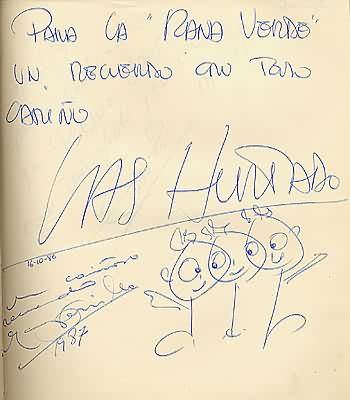 PARA LA "RANA VERDE"
UN RECUERDO CON TODO
CARIÑO
LAS HURTADO
16-10-86
un cariñoso
recuerdo
1987